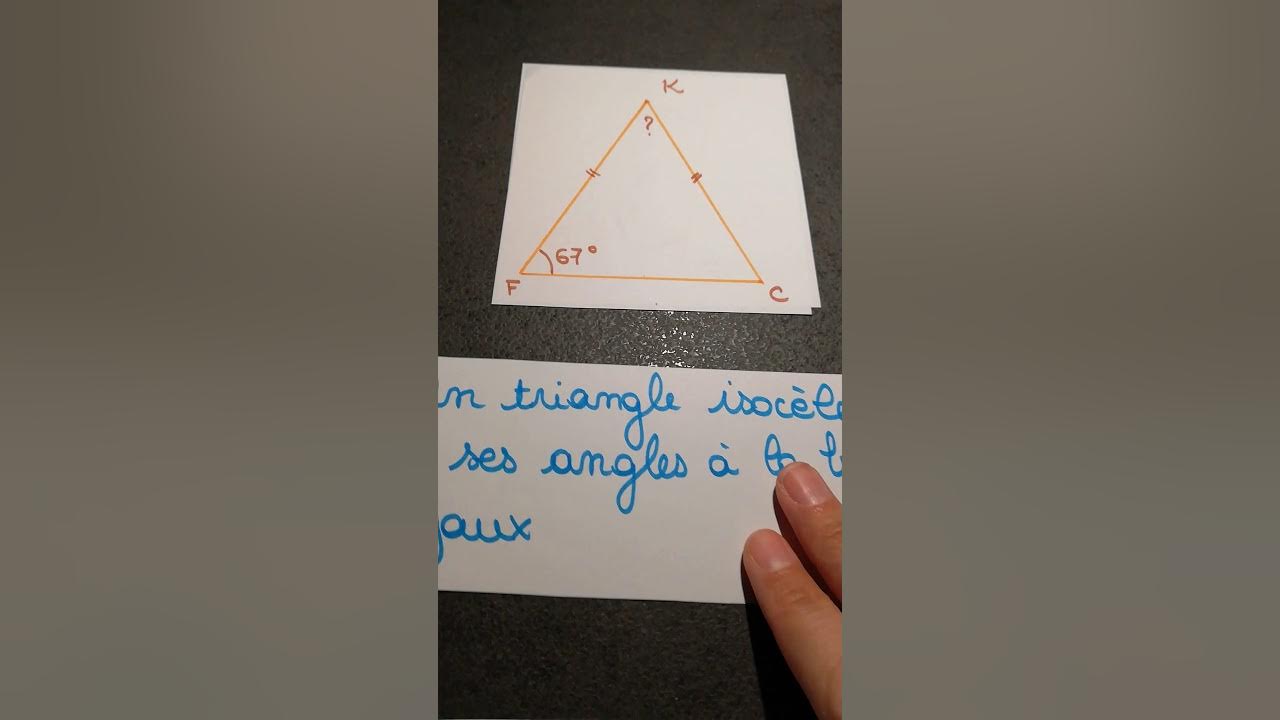 K
?
67°
F C
n triangle isocèle
ses angles à la
aux